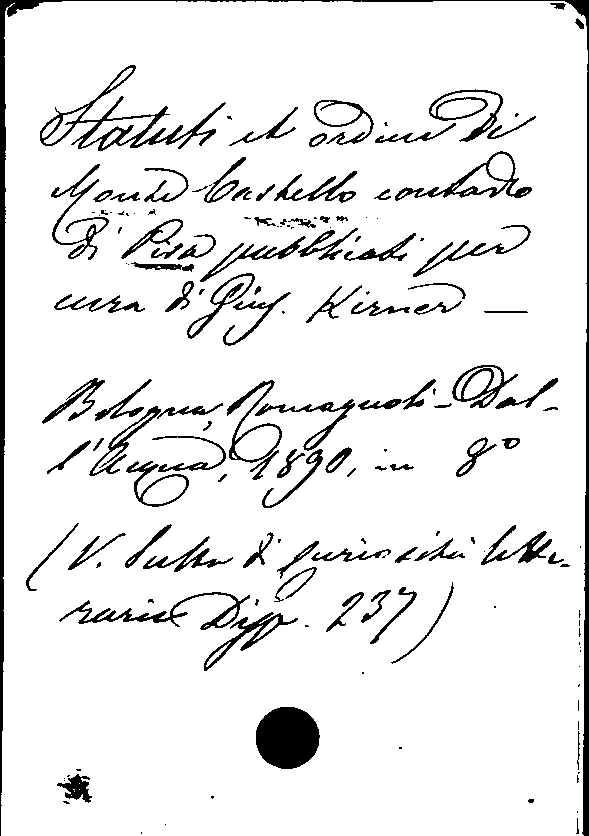 Statuti et ordini di
Monte Castello contado
di Pisa pubblicati per
cura di Gius. Kirner —
Bologna, Romagnoli-Dal-
l'Acqua, 1890, in 8º
(V. Scelta di Curiosità lette-
rarie Disp. 237)